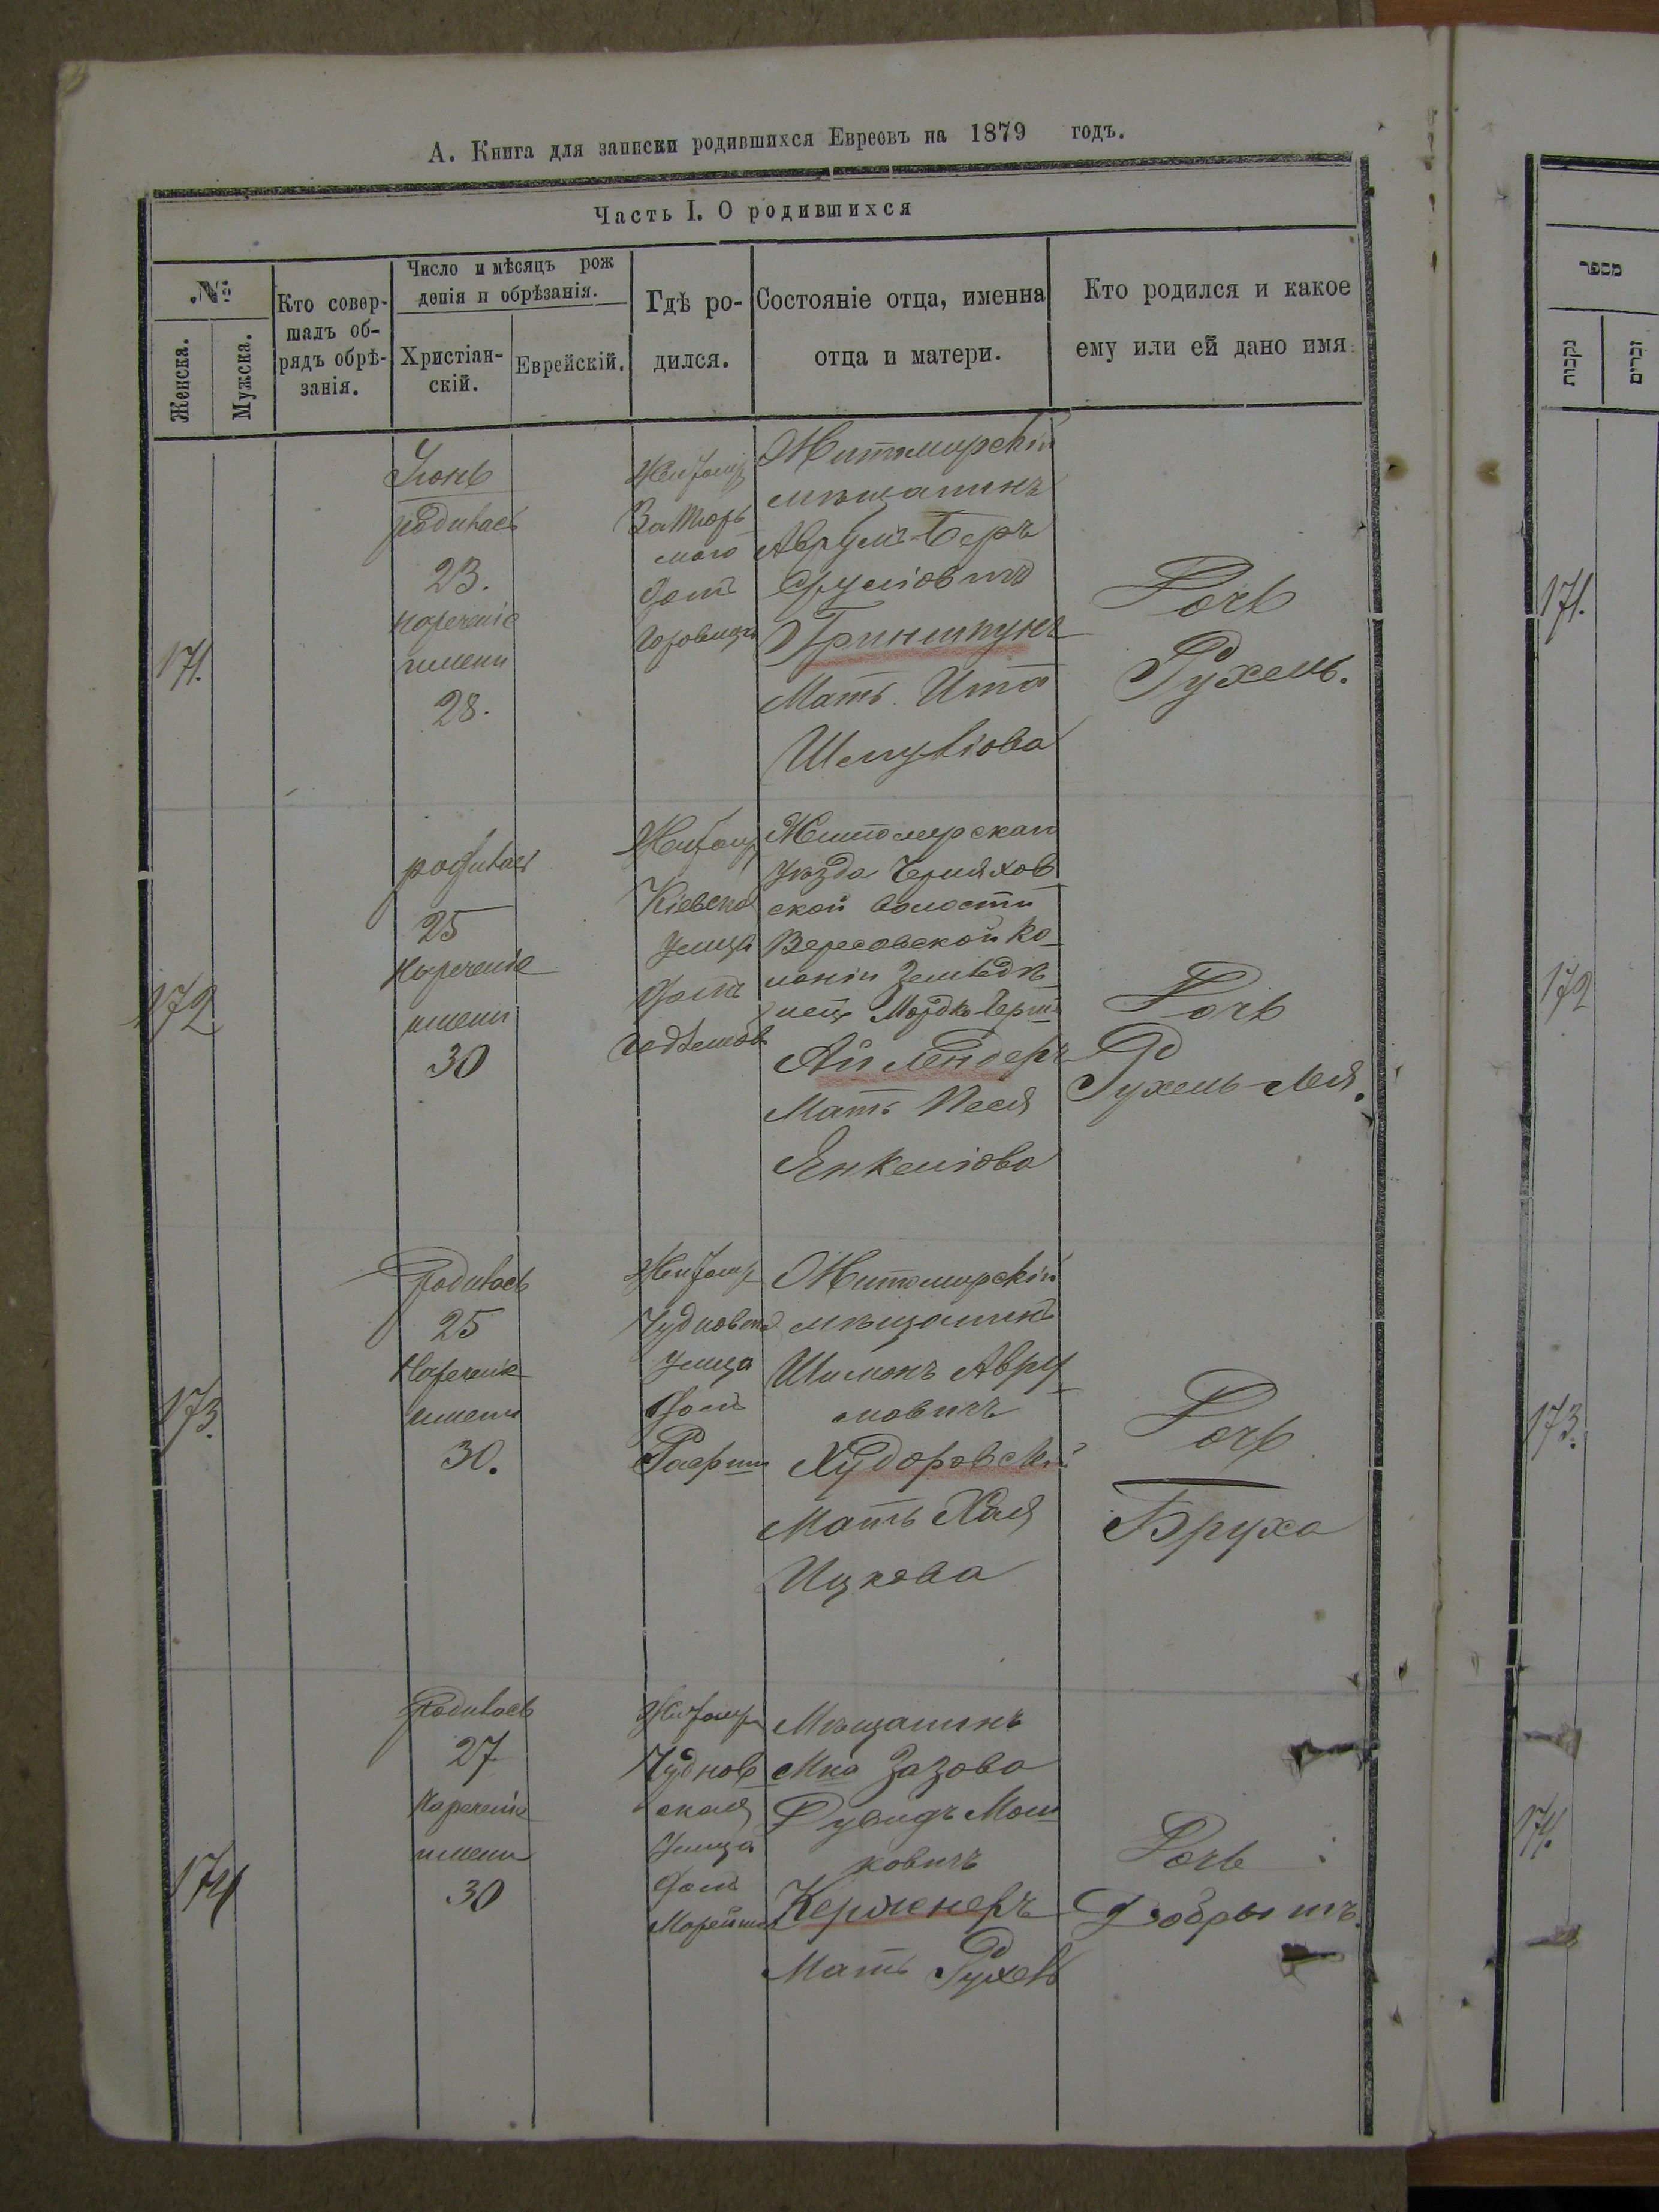 А. Книга для записки родившихся Евреевъ на 1879 годъ.
Часть I. О родившихся
№
Женска.
Мужска.
Кто совер-
шалъ об-
рядъ обрѣ-
занія.
Число и мѣсяцъ рож
денія и обрѣзанія.
Христіан-
скій.
Еврейскій.
Гдѣ ро-
дился.
Состояніе отца, именна
отца и матери.
Кто родился и какое
ему или ей дано имя
171.
Іюнь
родилась
23.
нареченіе
имени
28.
Житомир
домъ
Житомирскій
мѣщанинъ
Аврумъ-Беръ
Сруліовичъ
Гриншпунъ
Мать Ита
Шмуліова
Дочь
Рухель.
172
родилась
25
нареченіе
имени
30
Житомир
Кіевска
улица
домъ
Житомирскаго
уѣзда Черняхов
ской волости
Вересовской ко
лоніи Земледѣ
лецъ Мордко-Герш
Айлендеръ
Мать Песя
Янкеліова
Дочь
Рухель-Лея.
173.
Родилась
25
Нареченіе
имени
30.
Житомир
Чудновска
улица
домъ
Житомирскій
мѣщанинъ
Шимонъ Авру
мовичъ
Худоровскій
Мать Хая
Ицкова
Дочь
Бруха
174
Родилась
27
Нареченіе
имени
30
Житомир
Чуднов
ская
улица
домъ
Мѣщанинъ
Мка
Дувидъ Мош
ковичъ
Кержнеръ
Мать Рухель
Дочь
Добрышъ.
מספר
נקבות
זכרים
171.
172
173.
174.